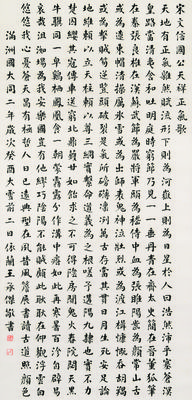 宋文信國公天祥正氣歌
天地有正氣雜然賦流形下則為河嶽上則為日星於人曰浩然沛乎塞蒼溟
皇路當清夷含和吐明庭時窮節乃見一一垂丹青在齊太史簡在晉董狐筆
在秦張良椎在漢蘇武節為嚴將軍頭為嵇侍中血為張睢陽齒為顏常山舌
或為遼東帽清操厲冰雪或為出師表鬼神泣壯烈或為渡江楫慷慨吞胡羯
或為擊賊笏逆豎頭破裂是氣所磅礴凜烈萬古存當其貫日月生死安足論
地維賴以立天柱賴以尊三綱實繫命道義為之根嗟予遘陽九隸也實不力
楚囚纓其冠傳車送窮北鼎鑊甘如飴求之不可得陰房闃鬼火春院閟天黑
牛驥同一皂雞棲鳳凰食一朝蒙霧露分作溝中瘠如此再寒暑百沴自辟易
哀哉沮洳場為我安樂國豈有他繆巧陰陽不能賊顧此耿耿在仰視浮雲白
悠悠我心悲蒼天曷有極哲人日已遠典型在夙昔風簷展書讀古道照顏色
滿洲國大同二年歲次癸酉大雪前二日依蘭王承傑敬書